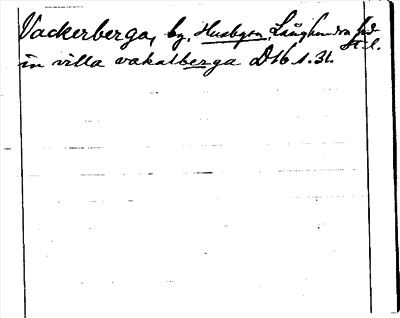 Vackerberga, by, Husbyön, Långhundra hd
St. l.
in villa vakalberga D16 1. 31.